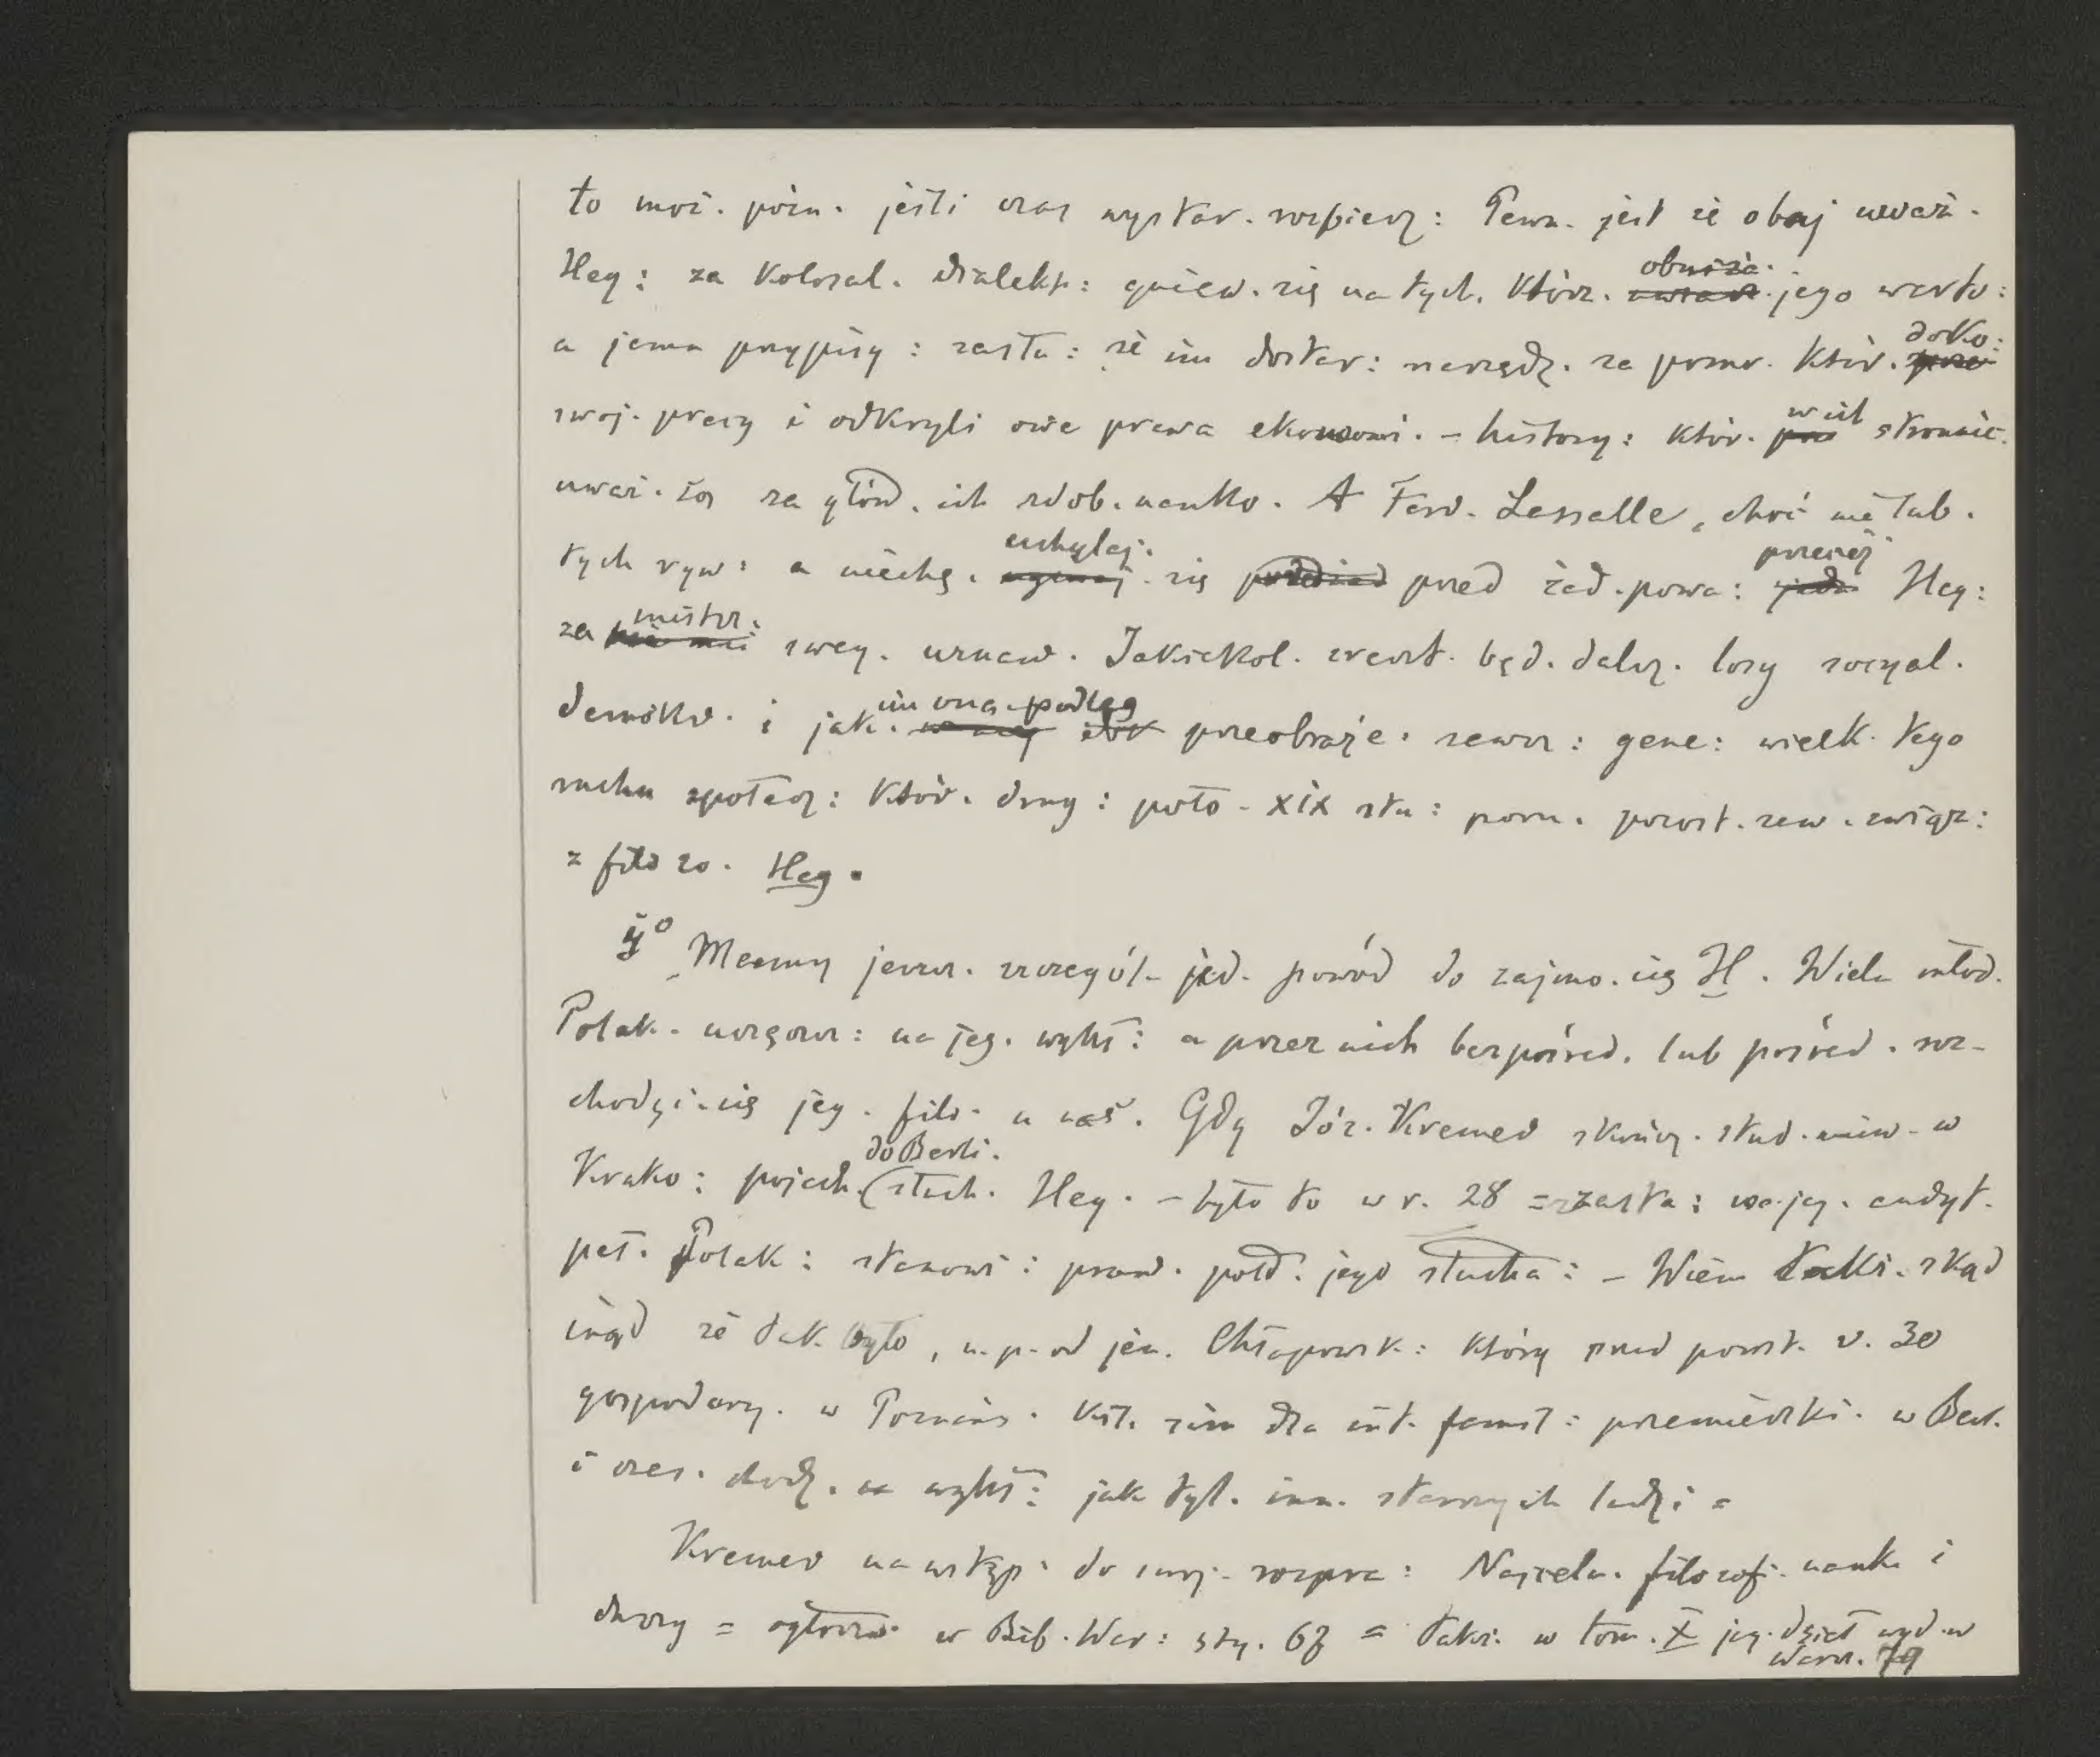 to moż. późn. jeśli czas wystar. rozbierz: Pewn. jest że obaj uważ.
Heg: za kolosal. dialekt: gniew. się na tych. którz. obniża. jego warto:
a jemu przypisy: zasłu: że im dostar: narzędz. za pomo. któr. doko:
swoj. pracy i odkryli owe prawa ekonomi. – history: któr. wiel stronnic.
uważ. za głów. ich zdob. nauko. A Ferd. Lassalle, choć nie lub.
tych ryw: a niechę. uchylaj. się przed żad. powa: przecież Heg:
za mistrz. sweg. uznaw. Jakiekol. zreszt. będ. dalsz. losy socyal.
demokr. i jak. im ona podleg przeobraże. zewsz: gene: wielk. tego
ruchu społecz: któr. drug: poło – XIX stu: poru. pozost. zaw. związ:
z filozo. Heg.
Mamy jeszcz. szczegól– jed. powód do zajmo. się H. Wielu młod.
Polak. uczęszcz: na jeg. wykł: a przez nich bezpośred. lub pośred. roz–
chodzi. się jeg. filo. u nas. Gdy Józ. Kremer skończ. stud. uniw. w
Krako: pojech. do Berli. słuch. Heg. – było to w r. 28 = zasta: na jeg. audyt.
peł. Polak: stanowi: praw. poło. jego słucha: – Wiem także. skąd
inąd że tak było, n. p. od jen. Chłapowsk: który przed powst. r. 30
gospodarz. w Poznańs. lecz zim dla int. famil: przemieszki. w Berl.
i czas. chodz. na wykł: jak tyl. inn. starszych ludzi =
Kremer na wstęp. do swoj. rozpra: Najceln. filozofi. nauk. i
duszy = ogłoszo. w Bib. War: sty. 67 = także. w tom. X jeg. dzieł wyd. w
Warsz. 79